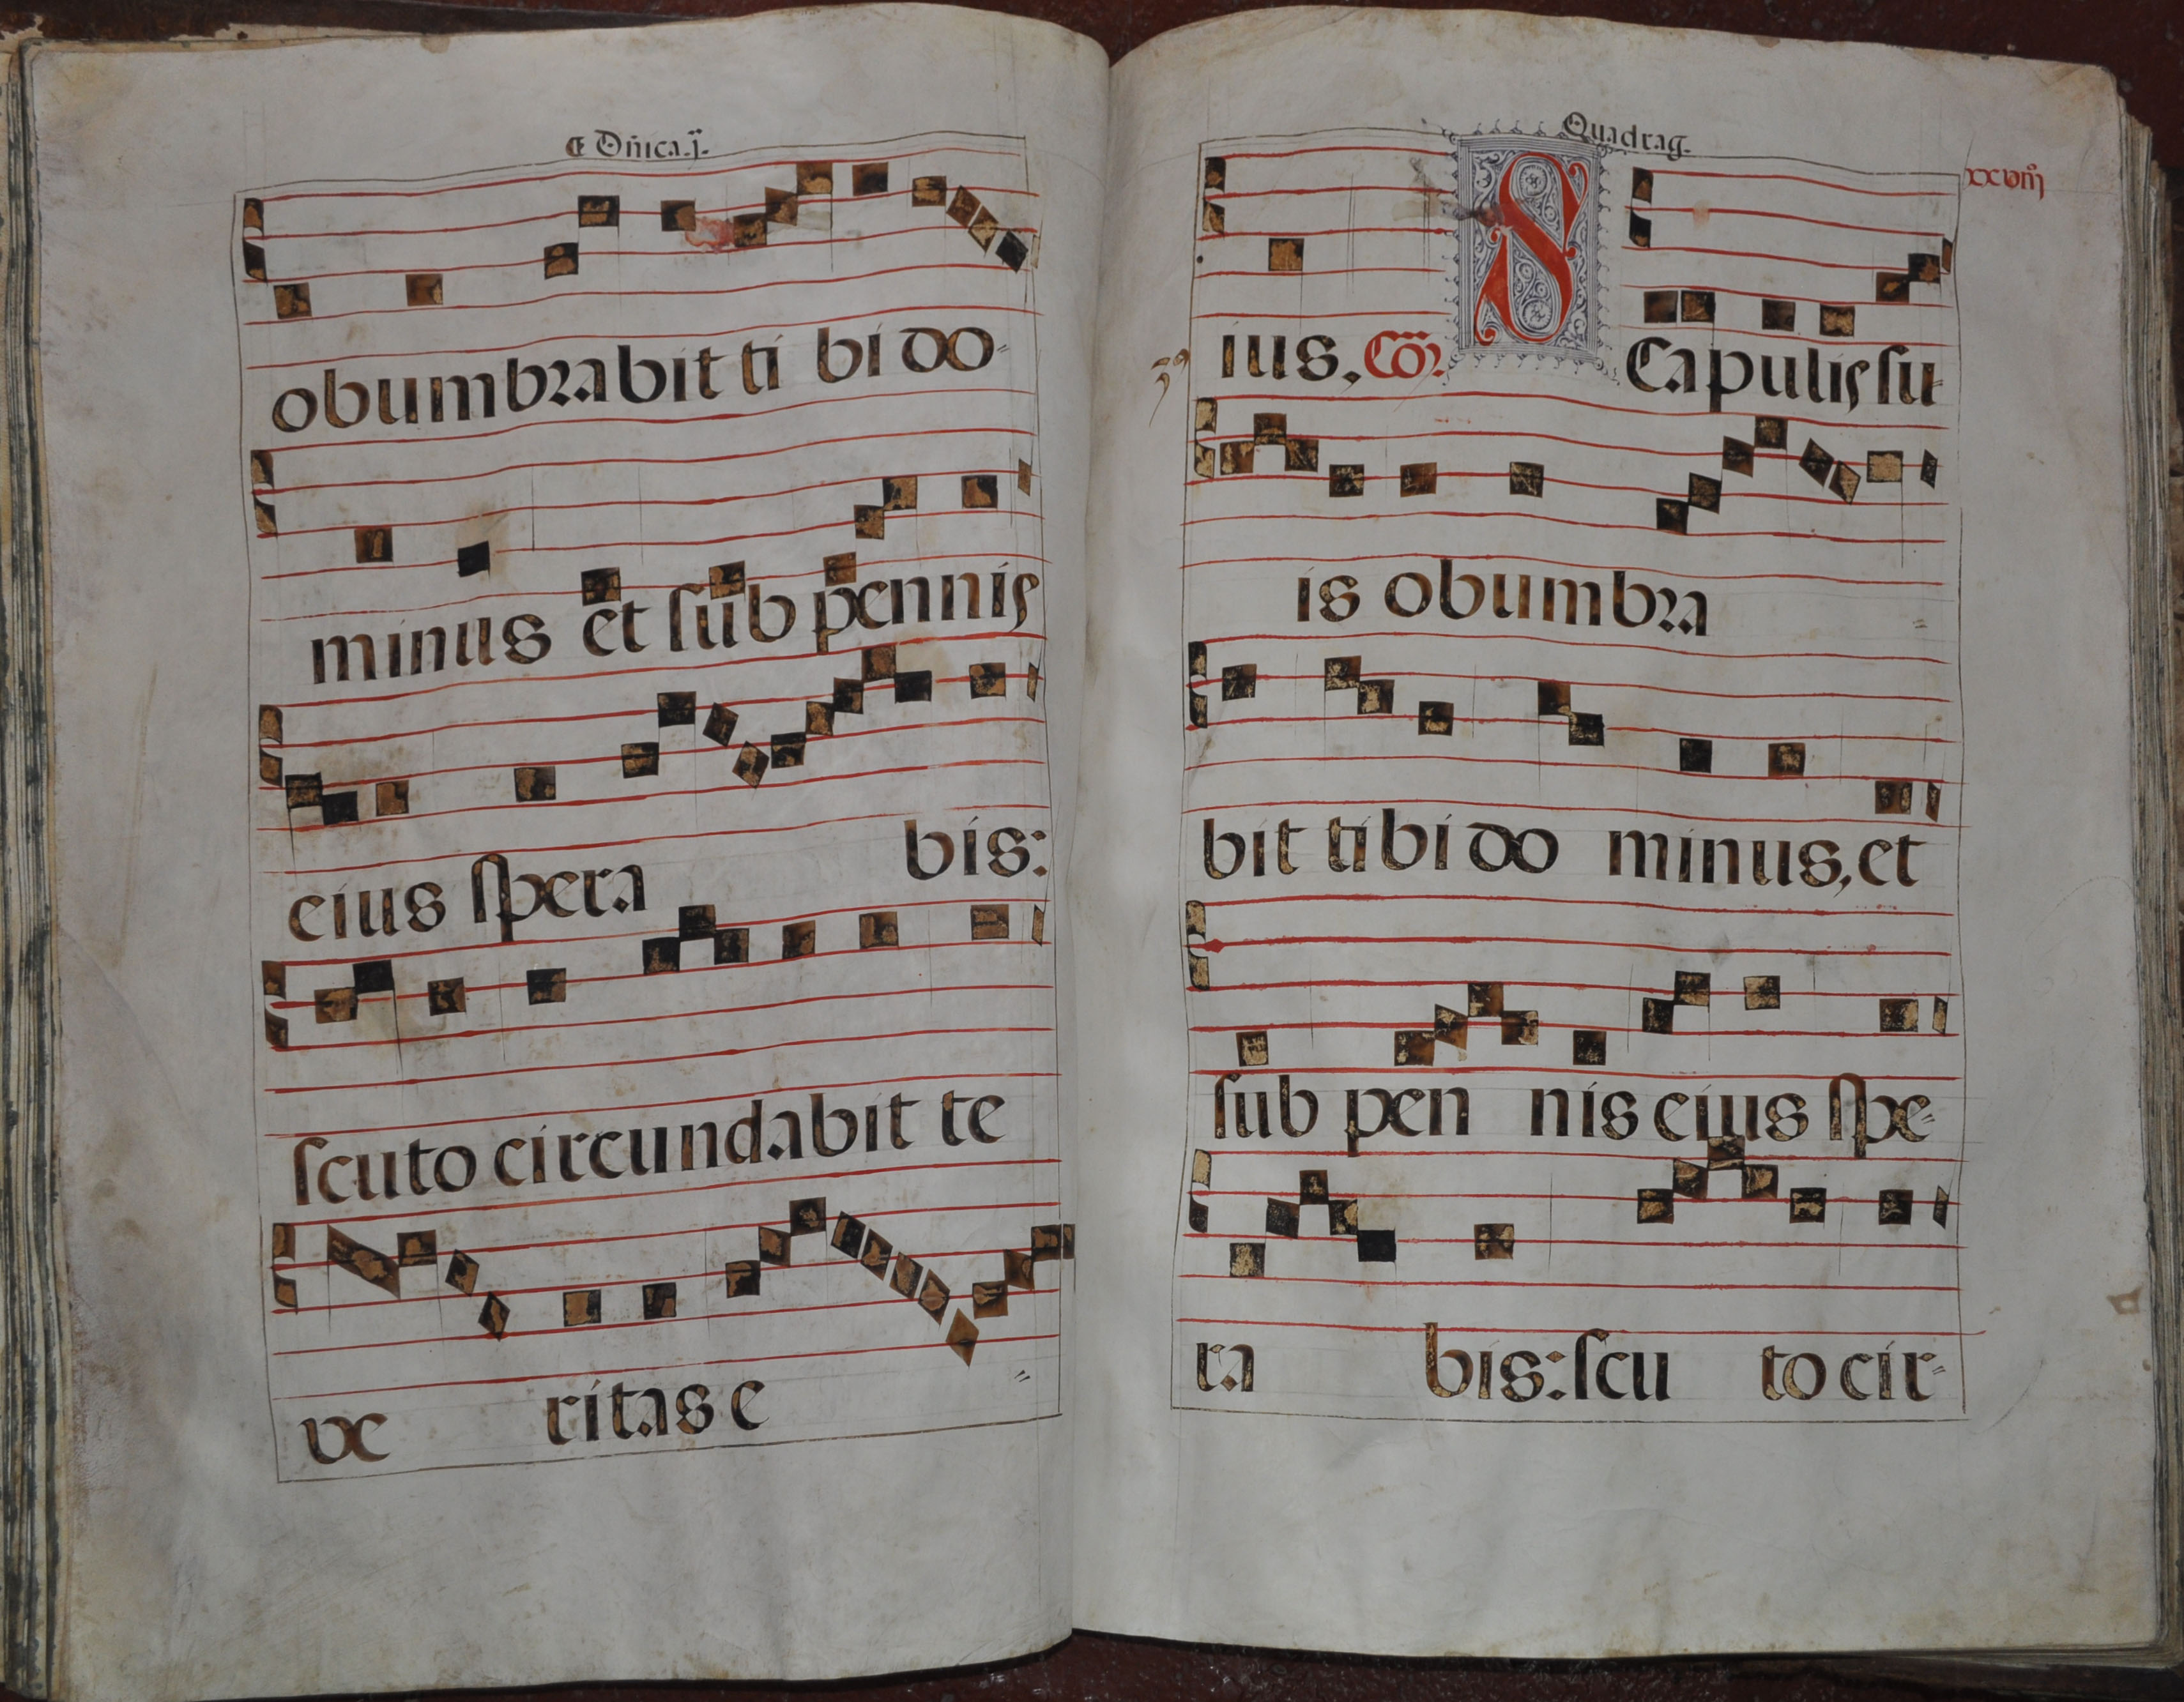 Dñica.j.
obumbrabit ti bi do-
minus et sub pennis
eius spera bis:
scuto circundabit te
ve ritas e-
Quadrag.
ius. Cõ. SCapulis su-
is obumbra-
bit tibi do minus, et
sub pen nis eius spe-
ra bis: scu to cir-